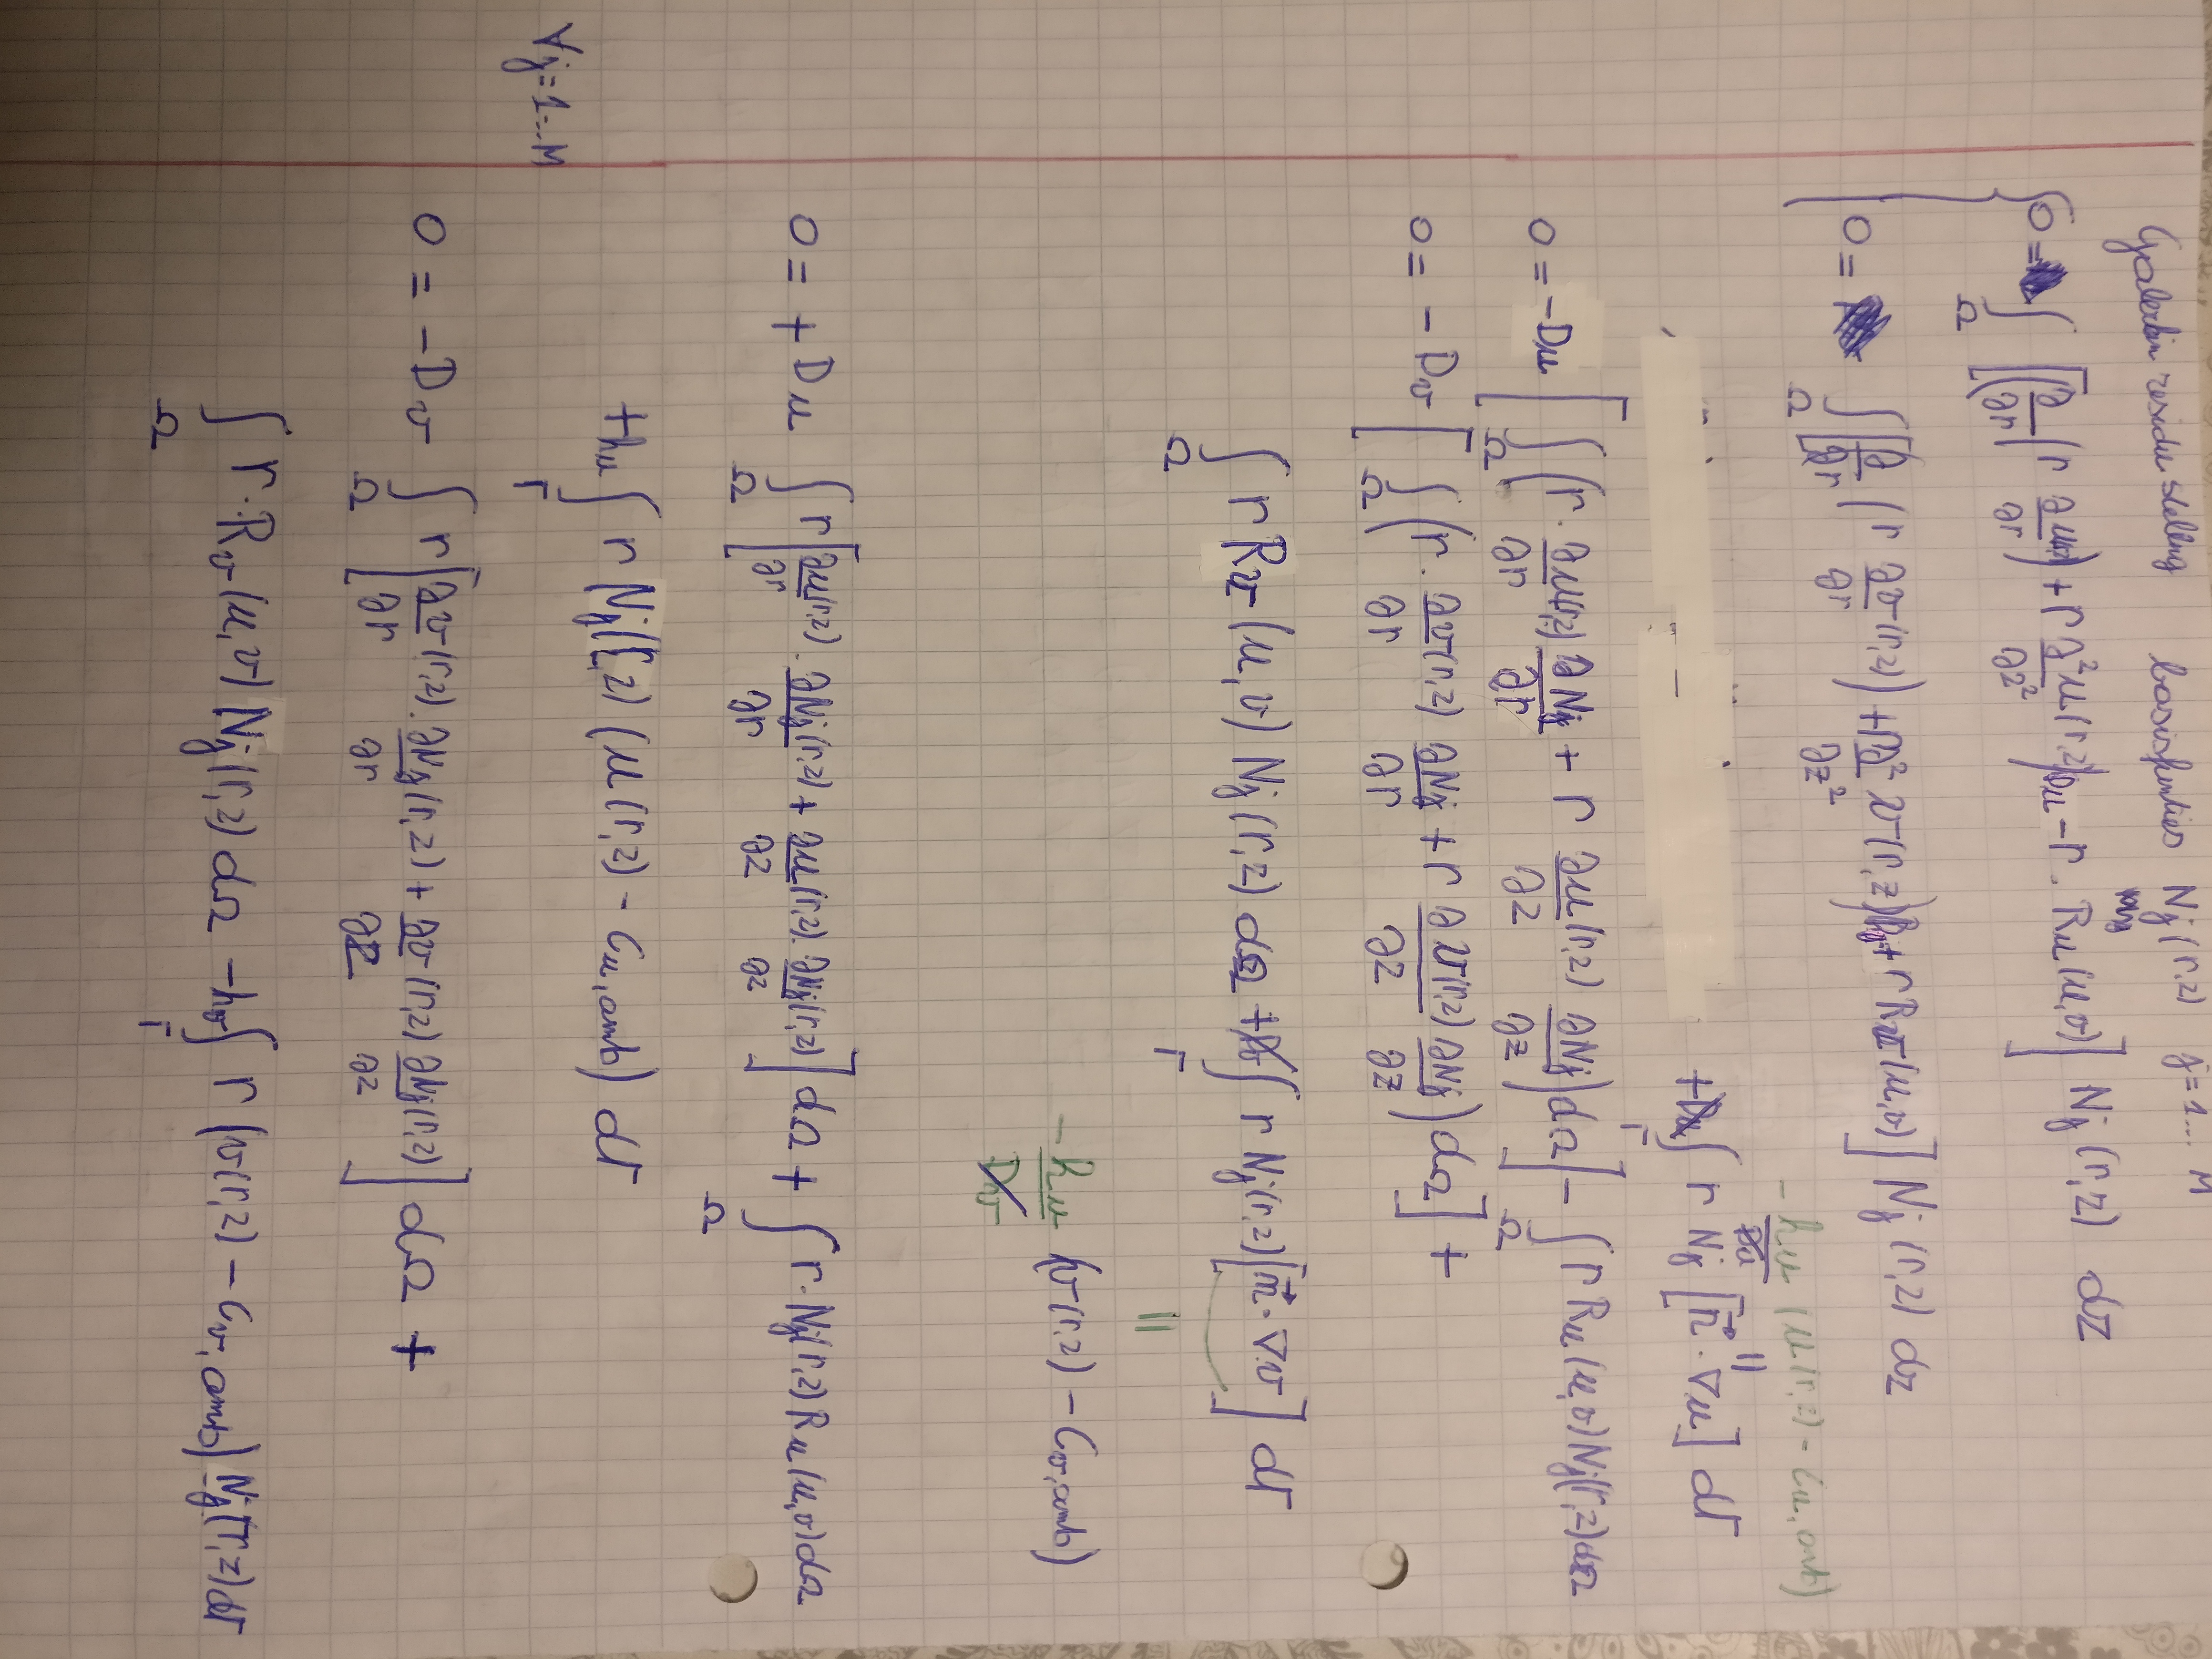 Galerkin residu stelling basisfuncties Nⱼ(r,z) j=1... M
0 = ∫_Ω [(∂/∂r (r ∂u/∂r) + r ∂²u(r,z)/∂z²) Dᵤ - r · Rᵤ(u,v)] Nⱼ(r,z) dz
0 = ∫_Ω [(∂/∂r (r ∂v(r,z)/∂r) + r ∂²v(r,z)/∂z²) Dᵥ + r Rᵥ(u,v)] Nⱼ(r,z) dz
-hᵤ (u(r,z) - Cᵤ,amb)
+ ∫_Γ r Nⱼ [n⃗ · ∇u] dΓ
0 = -Dᵤ [∫_Ω (r · ∂u(r,z)/∂r ∂Nⱼ/∂r + r ∂u(r,z)/∂z ∂Nⱼ/∂z) dΩ] - ∫_Ω r Rᵤ(u,v) Nⱼ(r,z) dΩ
0 = - Dᵥ [∫_Ω (r · ∂v(r,z)/∂r ∂Nⱼ/∂r + r ∂v(r,z)/∂z ∂Nⱼ/∂z) dΩ] +
∫_Ω r Rᵥ(u,v) Nⱼ(r,z) dΩ + ∫_Γ r Nⱼ(r,z) [n⃗ · ∇v] dΓ
=
(v(r,z) - Cᵥ,amb)
0 = + Dᵤ ∫_Ω r [∂u(r,z)/∂r · ∂Nⱼ(r,z)/∂r + ∂u(r,z)/∂z · ∂Nⱼ(r,z)/∂z] dΩ + ∫_Ω r · Nⱼ(r,z) Rᵤ(u,v) dΩ
+hᵤ ∫_Γ r Nⱼ(r,z) (u(r,z) - Cᵤ,amb) dΓ
∀j=1...M
0 = - Dᵥ ∫_Ω r [∂v(r,z)/∂r · ∂Nⱼ(r,z)/∂r + ∂v(r,z)/∂z ∂Nⱼ(r,z)/∂z] dΩ +
∫_Ω r · Rᵥ(u,v) Nⱼ(r,z) dΩ - hᵥ ∫_Γ r (v(r,z) - Cᵥ,amb) Nⱼ(r,z) dΓ